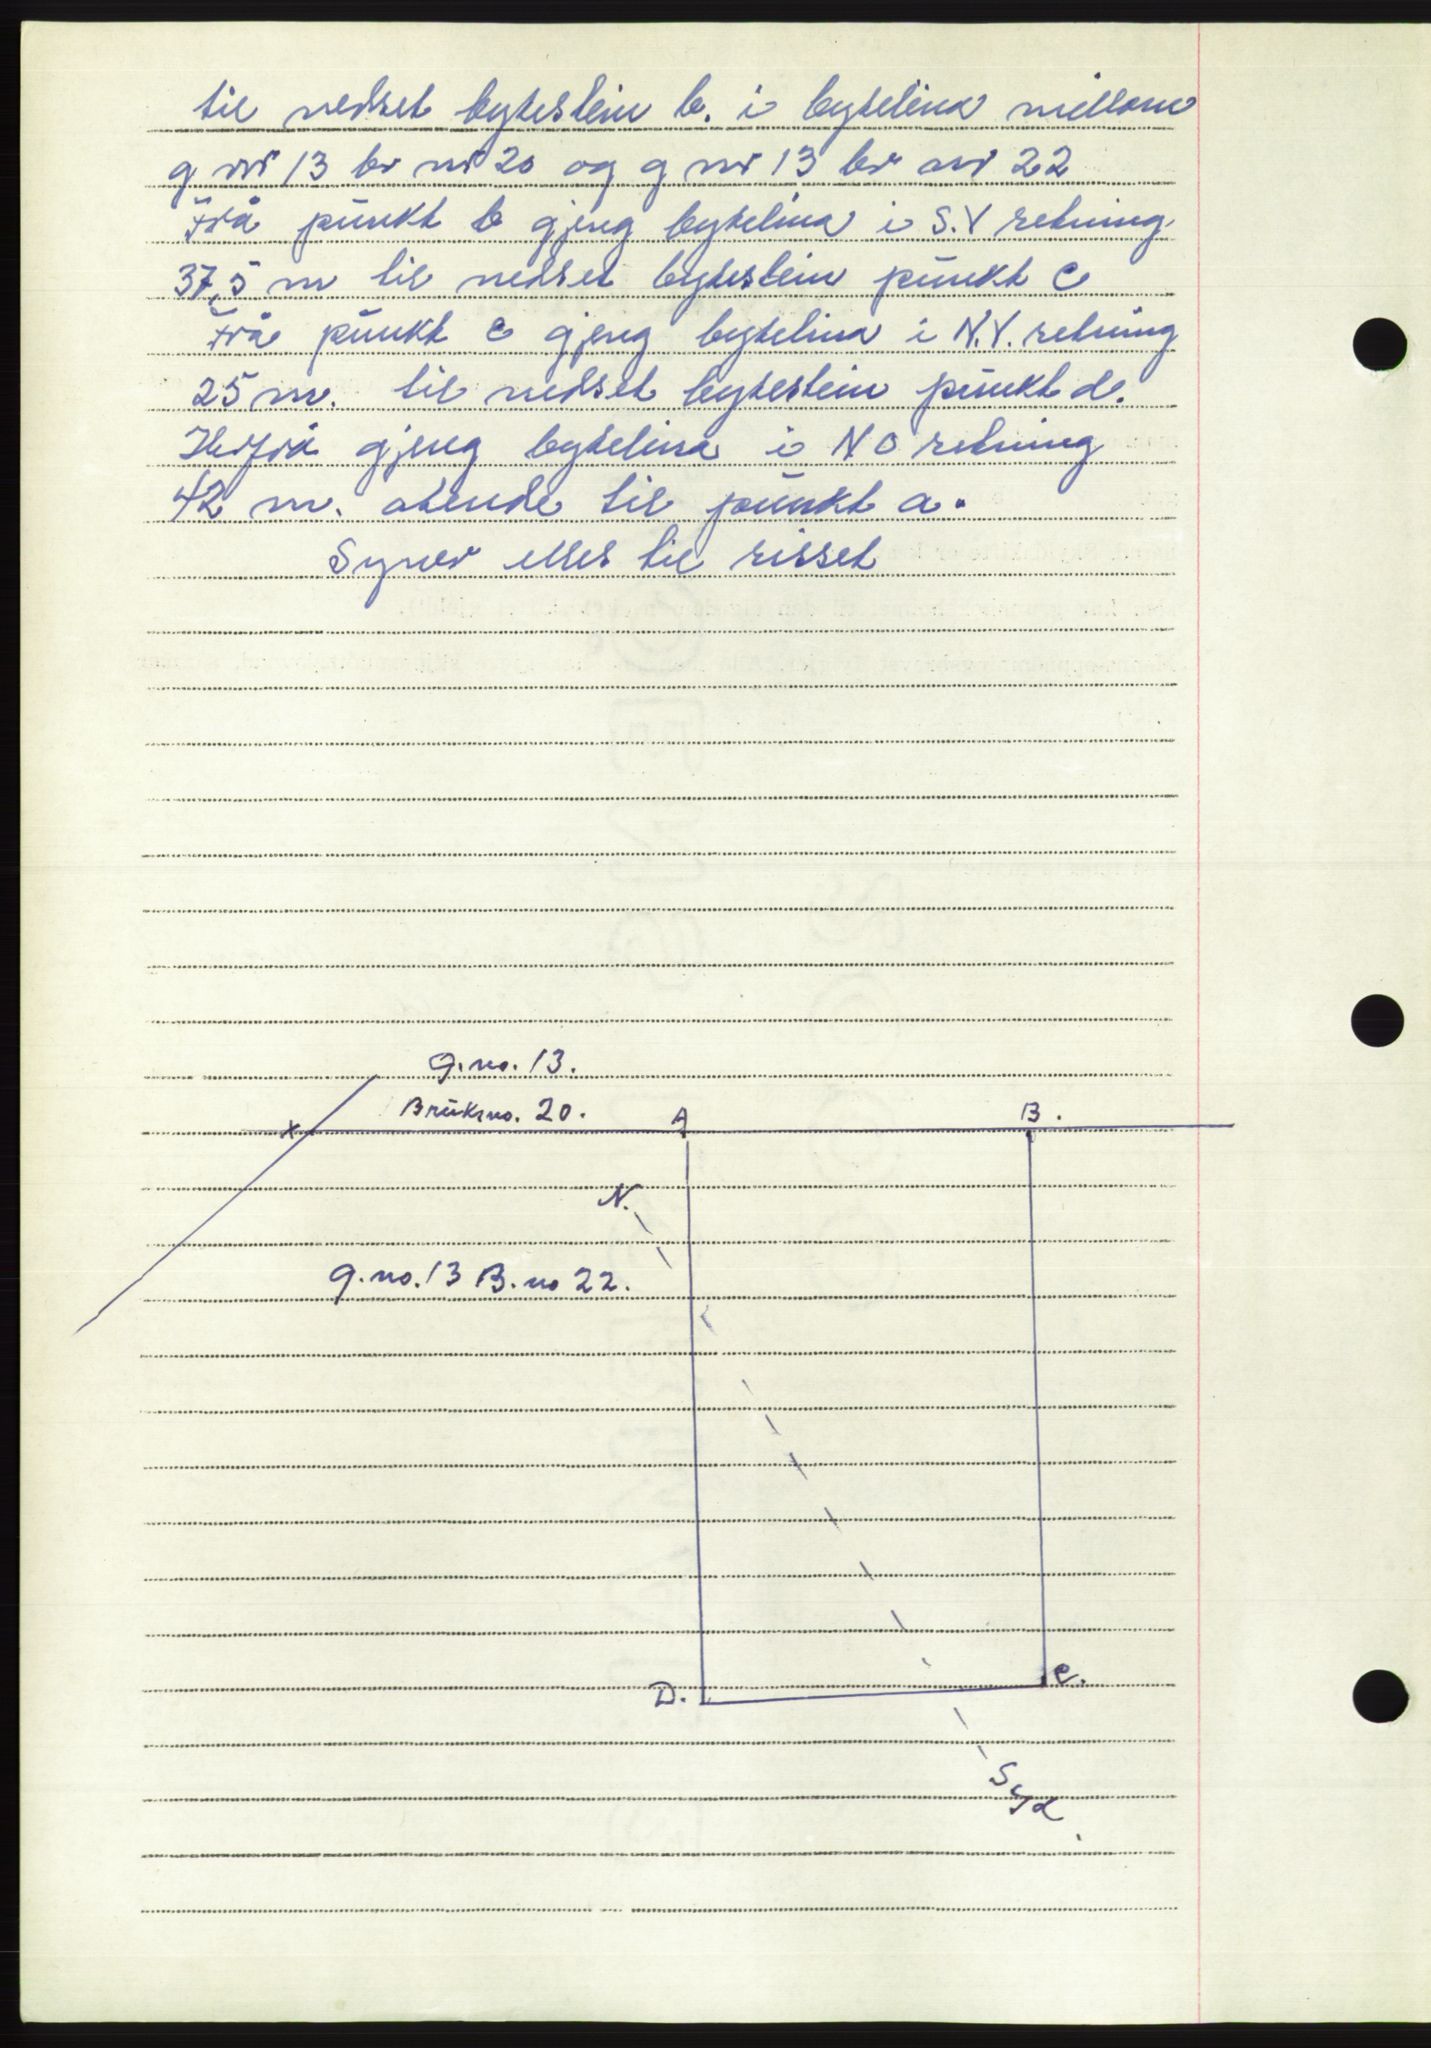 til nedset bytestein b. i bytelina millom
g nr 13 br nr 20 og g nr 13 br nr 22
Frå punkt b gjeng bytelina i S.V retning
37,5 m til nedset bytestein punkt c
Frå punkt c gjeng bytelina i N.V. retning
25 m. til nedset bytestein punkt d.
Herfrå gjeng bytelina i N O retning
42 m. atende til punkt a.
Syner elles til risset
g.no. 13.
Bruksno. 20.
A
B.
x
N.
g.no. 13 B.no 22.
D.
C.
Syd.